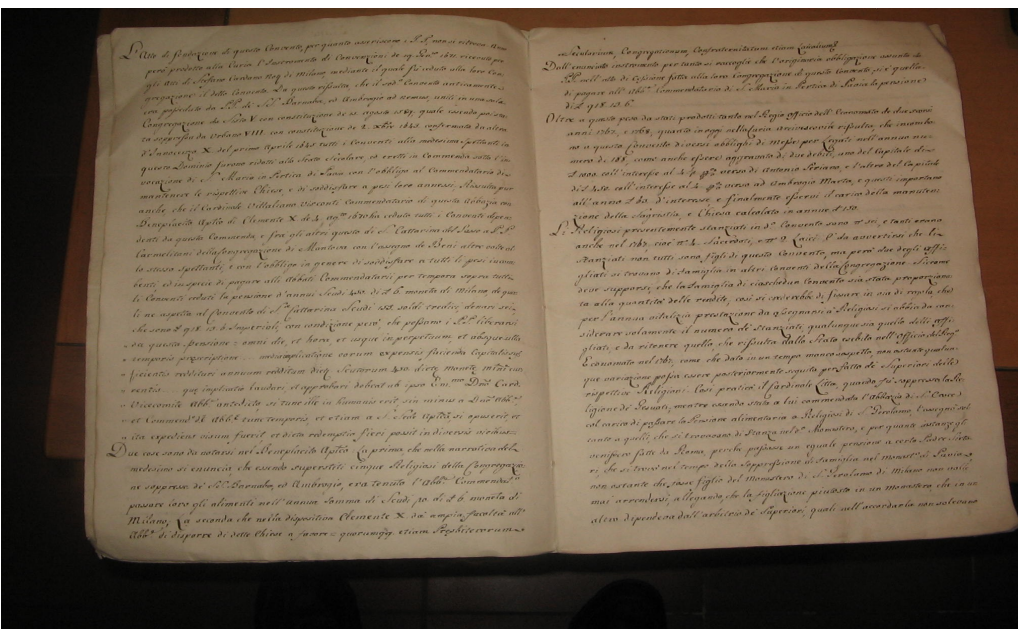 L'Atto di fondazione di questo Convento, per quanto asseriscono i P.P. non si ritrova. Anno
però prodotto alla Curia l'Istromento di Concessioni de 29 1671. ricevuto per
gli atti di Steffano Cardano Not. di Milano mediante il quale fù ceduto alla loro Con-
gregazione il detto Convento. Da questo risulta, che il sud.º Convento anticamente e-
ra posseduto da P.P. di S. Barnaba, ed Ambrogio ad nemus, uniti in una sola
Congregazione da Sisto V con constituzione de 15 Agosto 1589, quale essendo poi sta-
ta soppressa da Urbano VIII. con constituzione de 2. Xbre 1643 confermata da altra
d'Innocenzo X. del primo Aprile 1645. tutti i Conventi alla medesima spettanti in
questo Dominio furono ridotti allo Stato Secolare, ed eretti in Commenda sotto l'in-
vocazione di S. Maria in Pertica di Pavia con l'obbligo al Commendatario di
mantenere le rispettive Chiese, e di soddisfare a pesi loro annessi. Risulta pur
anche, che il Cardinale Vitaliano Visconti Commendatario di questa Abbazia con
Beneplacito Aplico di Clemente X. de 4. 1670 ha ceduto tutti i Conventi dipen-
denti da questa Commenda, e fra gli altri questo di S. Cattarina del Sasso a P.P.
Carmelitani della Congregazione di Mantova con l'assegno de Beni altre volte al
lo stesso spettanti, e con l'obbligo in genere di soddisfare a tutti li pesi incum-
benti, ed in specie di pagare alli Abbati Commendatarii per tempora sopra tutti
li Conventi ceduti la pensione d'annui Scudi 450. di £ 6 moneta di Milano, de qua-
li ne aspetta al Convento di S. Cattarina Scudi 153 soldi tredici, denari sei,
che sono £ 918. 13. 6 Imperiali, con condizione però, che possano i P.P. liberarsi
da questa pensione = omni die, et hora, et usque in perpetuum et absque ulla
temporis prescriptione ... antecipatisque eorum expensis facienda capitalis suf-
ficientis redditui annuum redditum dictorum Scutorum 450 dictæ monetæ
ventia ... qui implicatio laudari, et approbari debeat ab ipso Em.mo Dno Card.
Vicecomite Abb.e antedicto si tunc ille in humanis erit, sin minus a Dno Abb.e
et Commend.º Abb.æ tunc temporis, et etiam a S. Sede Aplica si opus erit, et
ita expediens visum fuerit, et dicta redemptio fieri possit in diversis vicibus.
Due cose sono da notarsi nel Beneplacito Aplico. La prima che nella narrativa del
medesimo si enuncia che essendo superstiti cinque Religiosi della Congregazio-
ne soppressa di S. Barnaba, ed Ambrogio, era tenuto l'Abb.e Commendat.º
passare loro gli alimenti nell'annua somma di Scudi 50 di £ 6 moneta di
Milano. La seconda che nella dispositiva Clemente X. dà ampia facoltà all'
Abb.e di disporre di dette Chiese a favore = quorumq. etiam Presbiterorum
Secularium, Congregationum, Confraternitatum etiam Laicalium.
Dall'enunciato instromento per tanto si raccoglie che l'originaria obbligazione assunta da
P.P. nell'atto di Cessione fatta alla loro Congregazione di questo Convento si è quella
di pagare all'Abb.e Commendatario di S. Maria in Pertica di Pavia la pensione
di £ 918. 13. 6.
Oltre a questo peso da stati prodotti tanto nel Regio Officio dell'Economato de due scorsi
anni 1767, e 1768, quanto in oggi nella Curia Arcivescovile risulta, che incombo-
no a questo Convento diversi obblighi di Messe per Legati nell'annuo nu-
mero di 188, come anche essere aggravato di due debiti, uno del Capitale di
£ 1000. coll'interesse al 4. p.% verso di Antonio Periano, e l'altro del Capitale
di £ 450. coll'interesse al 4. p.% verso ad Ambrogio Marta, e questi importano
all'anno £ 60. d'interesse, e finalmente esservi il carico della manuten-
zione della Sagristia, e Chiesa calcolato in annue £ 150.
Li Religiosi presentemente stanziati in d.º Convento sono nº sei, e tanti erano
anche nel 1767. cioè nº 4. Sacerdoti, e nº 2 Laici. E' da avvertirsi che li
Stanziati non tutti sono figli di questo Convento, ma però due degli affi-
gliati si trovano di famiglia in altri Conventi della Congregazione. Siccome
deve supporsi, che la famiglia di ciaschedun Convento sia stata proporziona-
ta alla quantità delle rendite, così si crederebbe di fissare in via di regola, che
per l'annua vitalizia prestazione da assegnarsi a Religiosi si abbia da con-
siderare solamente il numero de Stanziati, qualunque sia quello delli affi-
gliati, e da ritenere quello che risulta dallo Stato esibito nell'Officio del Reg.º
Economato nel 1767, come che dato in un tempo non sospetto, nonostante qualun-
que variazione possa essere posteriormente seguita per fatto de Superiori delle
rispettive Religioni. Così praticò il Cardinale Litta, quando fù soppressa la Re-
ligione de Gesuati, mentre essendo stata a lui commendata l'Abbazia di S.
col carico di pagare la Pensione alimentaria a Religiosi di S. Gerolamo, l'assegnò sol-
tanto a quelli, che si trovavano di Stanza nel d.º Monistero, e per quante istanze gli
venissero fatte da Roma, perchè passasse un eguale pensione a certo Padre
ri che si trovò nel tempo della soppressione di famiglia nel monist.º di Pavia,
non ostante che fosse figlio del Monistero di S. Gerolamo di Milano non volle
mai arrendersi, allegando, che la figliazione piuttosto in un monistero che in un
altro dipendeva dall'arbitrio de Superiori quali nell'accordarla non solevano